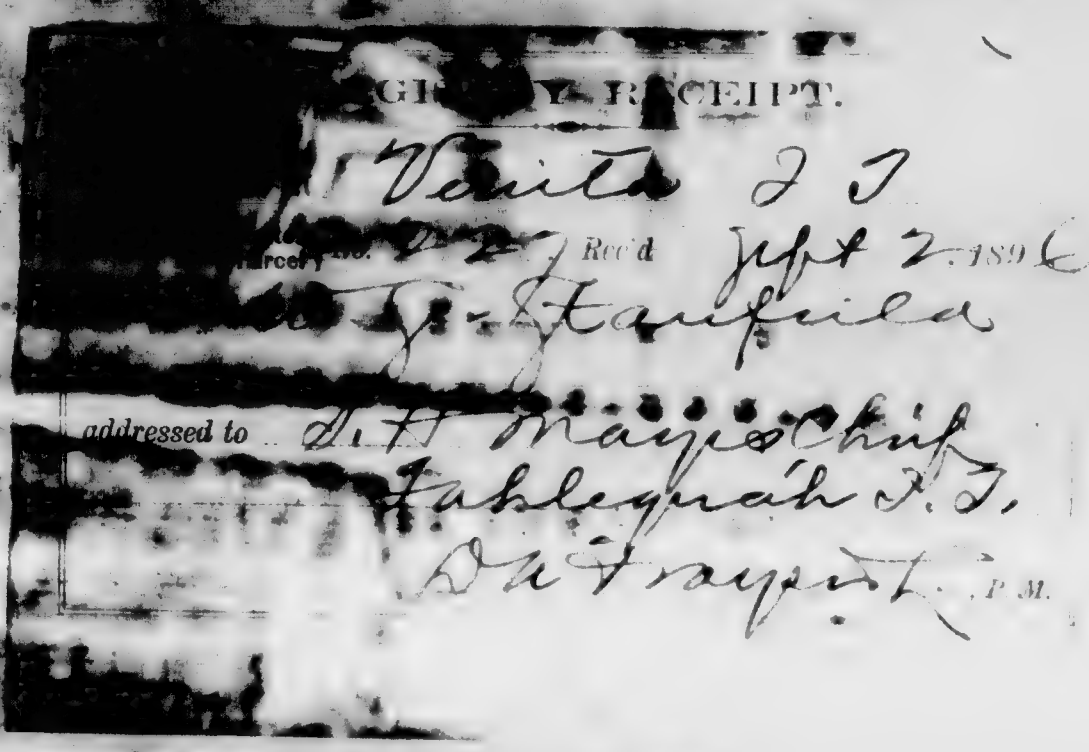 RECEIPT.
Venita I T
Parcel No. 227 Rec'd Sept 2 1896
J. Stanfield
addressed to S. H Mayes Chief
Tahlequah I. T.
P. M.